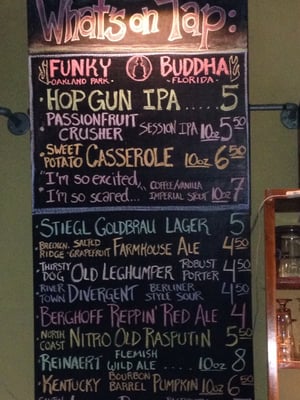 What's on Tap:
FUNKY BUDDHA
OAKLAND PARK. -FLORIDA-
HOP GUN IPA ..... 5
PASSIONFRUIT
CRUSHER SESSION IPA 10oz 5 50
SWEET
POTATO CASSEROLE 10oz 6 50
"I'm so excited,, COFFEE/VANILLA
I'm so scared... IMPERIAL STOUT 10oz 7
STIEGL GOLDBRAU LAGER 5
BRECKEN. SALTED
RIDGE -GRAPEFRUIT FARMHOUSE ALE 4 50
THIRSTY
DOG OLD LEGHUMPER ROBUST
PORTER 4 50
RIVER
TOWN DIVERGENT BERLINER
STYLE SOUR 4 50
BERGHOFF REPPIN' RED ALE 4
NORTH
COAST NITRO OLD RASPUTIN 5 50
REINAERT FLEMISH
WILD ALE .... 10oz 8
KENTUCKY BOURBON
BARREL PUMPKIN 10oz 6